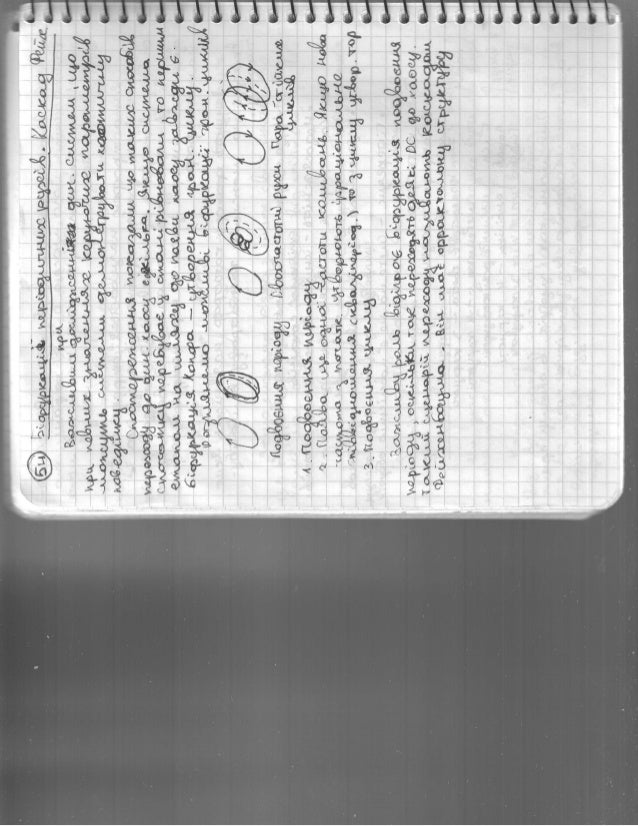 54 Біфуркація періодичних рухів. Каскад Фейг
при
Важливим дослідженням дин. систем, що
при певних значеннях керуючих параметрів
можуть системи демонструвати хаотичну
поведінку.
Спостереження показали що таких способів
переходу до дин. хаосу є кілька. Якщо система
спочатку перебуває у стані рівноваги то першим
етапом на шляху до появи хаосу завжди є
біфуркація Хопфа – утворення гран. циклу.
Розглянемо можливі біфуркації гран. циклів
Подвоєння періоду Двочастотні рухи Пара стійких
циклів
1. Подвоєння періоду
2. Поява ще одної частоти коливань. Якщо нова
частота з початк. утворюють ірраціональне
співвідношення (квазіперіод.) то з циклу утвор. тор
3. Подвоєння циклу
Важливу роль відіграє біфуркація подвоєння
періоду, оскільки так переходять деякі ДС до хаосу.
Такий сценарій переходу називають каскадом
Фейхенбаума. Він має фрактальну структуру